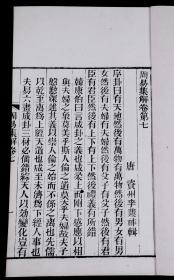 周易集解卷第七
唐 資州李鼎祚輯
序卦曰有天地然後有萬物有萬物然後有男女有男
女然後有夫婦有夫婦然後有父子有父子然後有君
臣有君臣然後有上下有上下然後禮義有所錯
韓康伯曰言咸卦之義也咸柔上而剛下感應以相
與夫婦之象莫美乎斯人倫之道莫大乎夫婦故夫子
殷勤深述其義以崇人倫之始而不係之離也先儒
以乾至離為上經天道也咸至未濟為下經人事也
夫易六畫成卦三材必備錯綜天人以效變化豈有
周易集解卷七